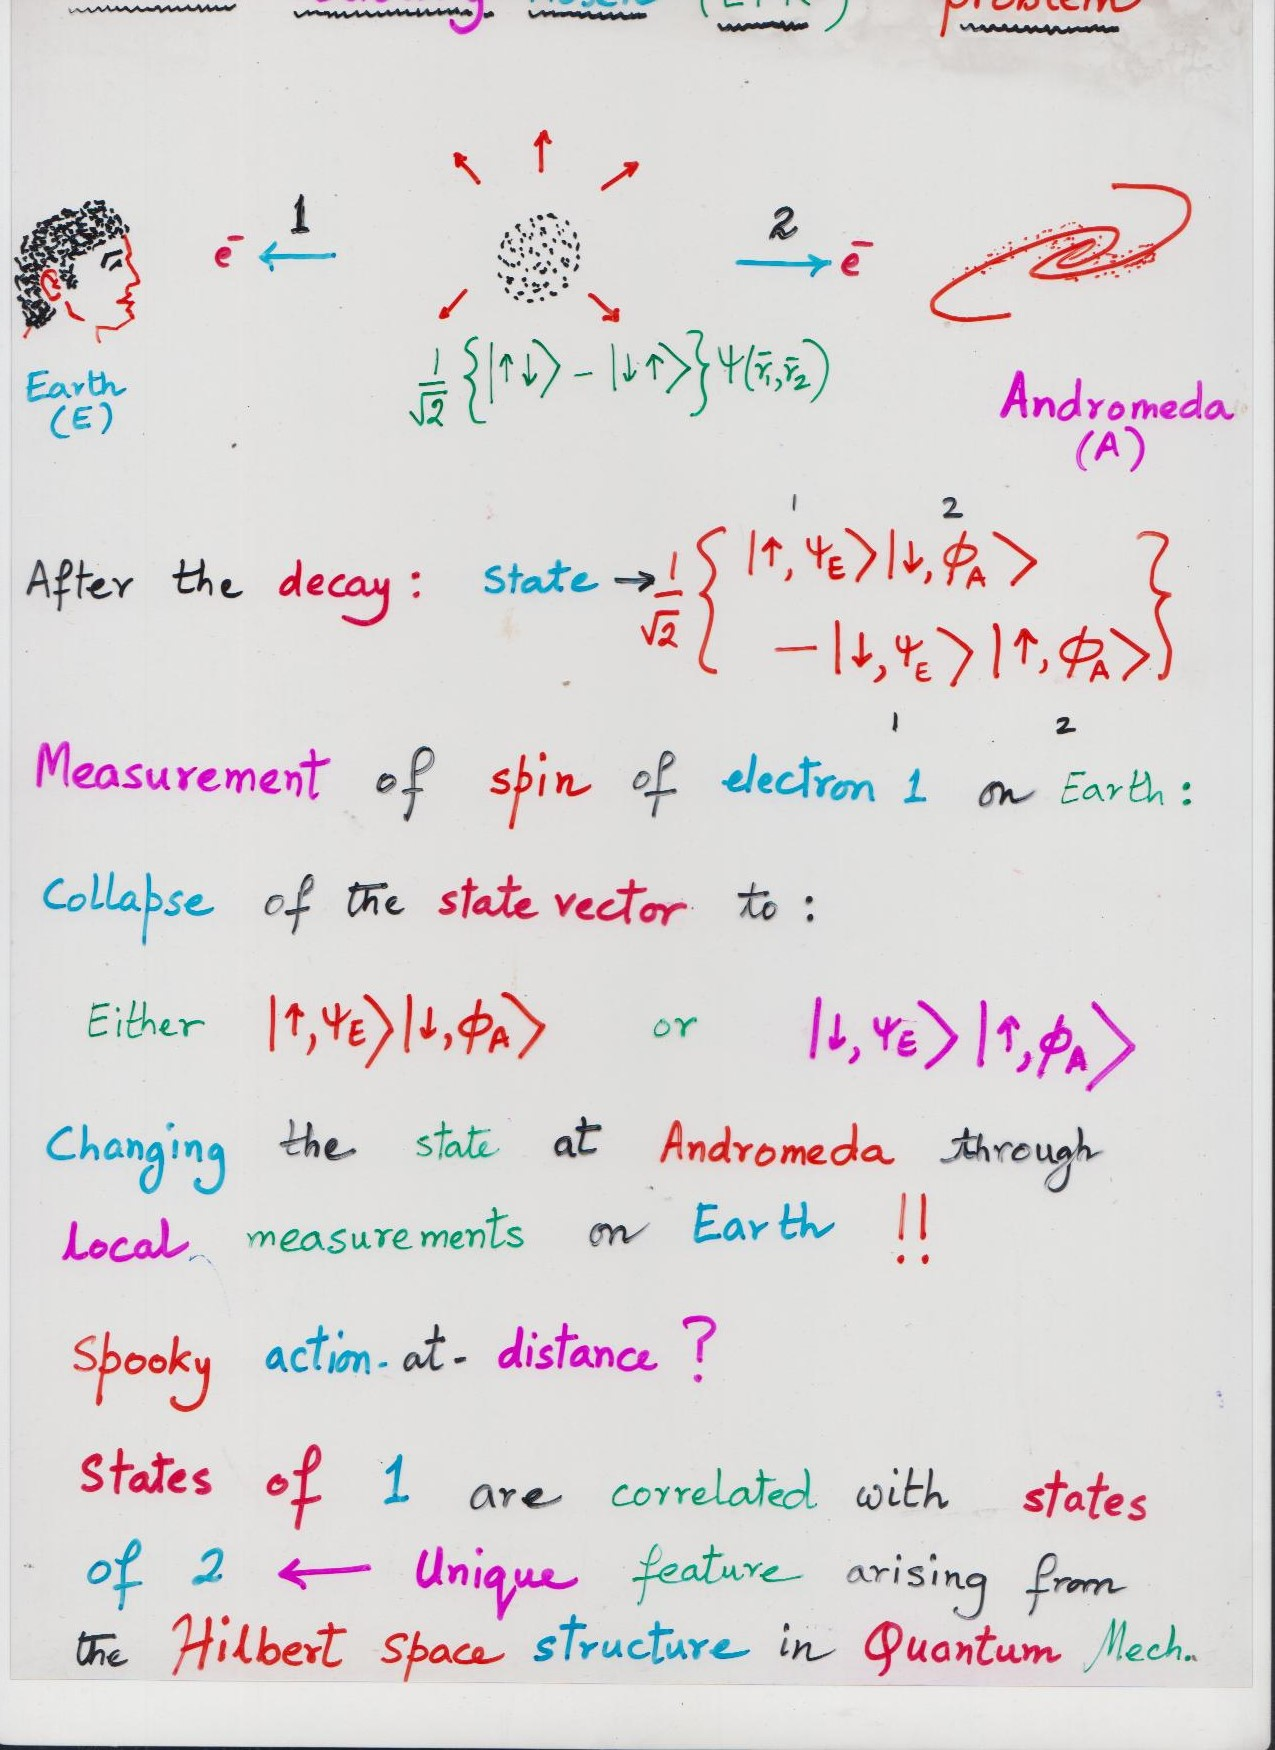 (EPR) problem
1 2
e⁻ e⁻
1/√2 {|↑↓⟩ − |↓↑⟩} Ψ(r̄₁, r̄₂)
Earth
(E)
Andromeda
(A)
1 2
After the decay: State → 1/√2 { |↑, Ψ_E⟩ |↓, ϕ_A⟩
− |↓, Ψ_E⟩ |↑, ϕ_A⟩ }
1 2
Measurement of spin of electron 1 on Earth:
Collapse of the state vector to:
Either |↑, Ψ_E⟩ |↓, ϕ_A⟩ or |↓, Ψ_E⟩ |↑, ϕ_A⟩
Changing the state at Andromeda through
Local measurements on Earth !!
Spooky action-at-distance ?
States of 1 are correlated with states
of 2 ← Unique feature arising from
the Hilbert space structure in Quantum Mech.